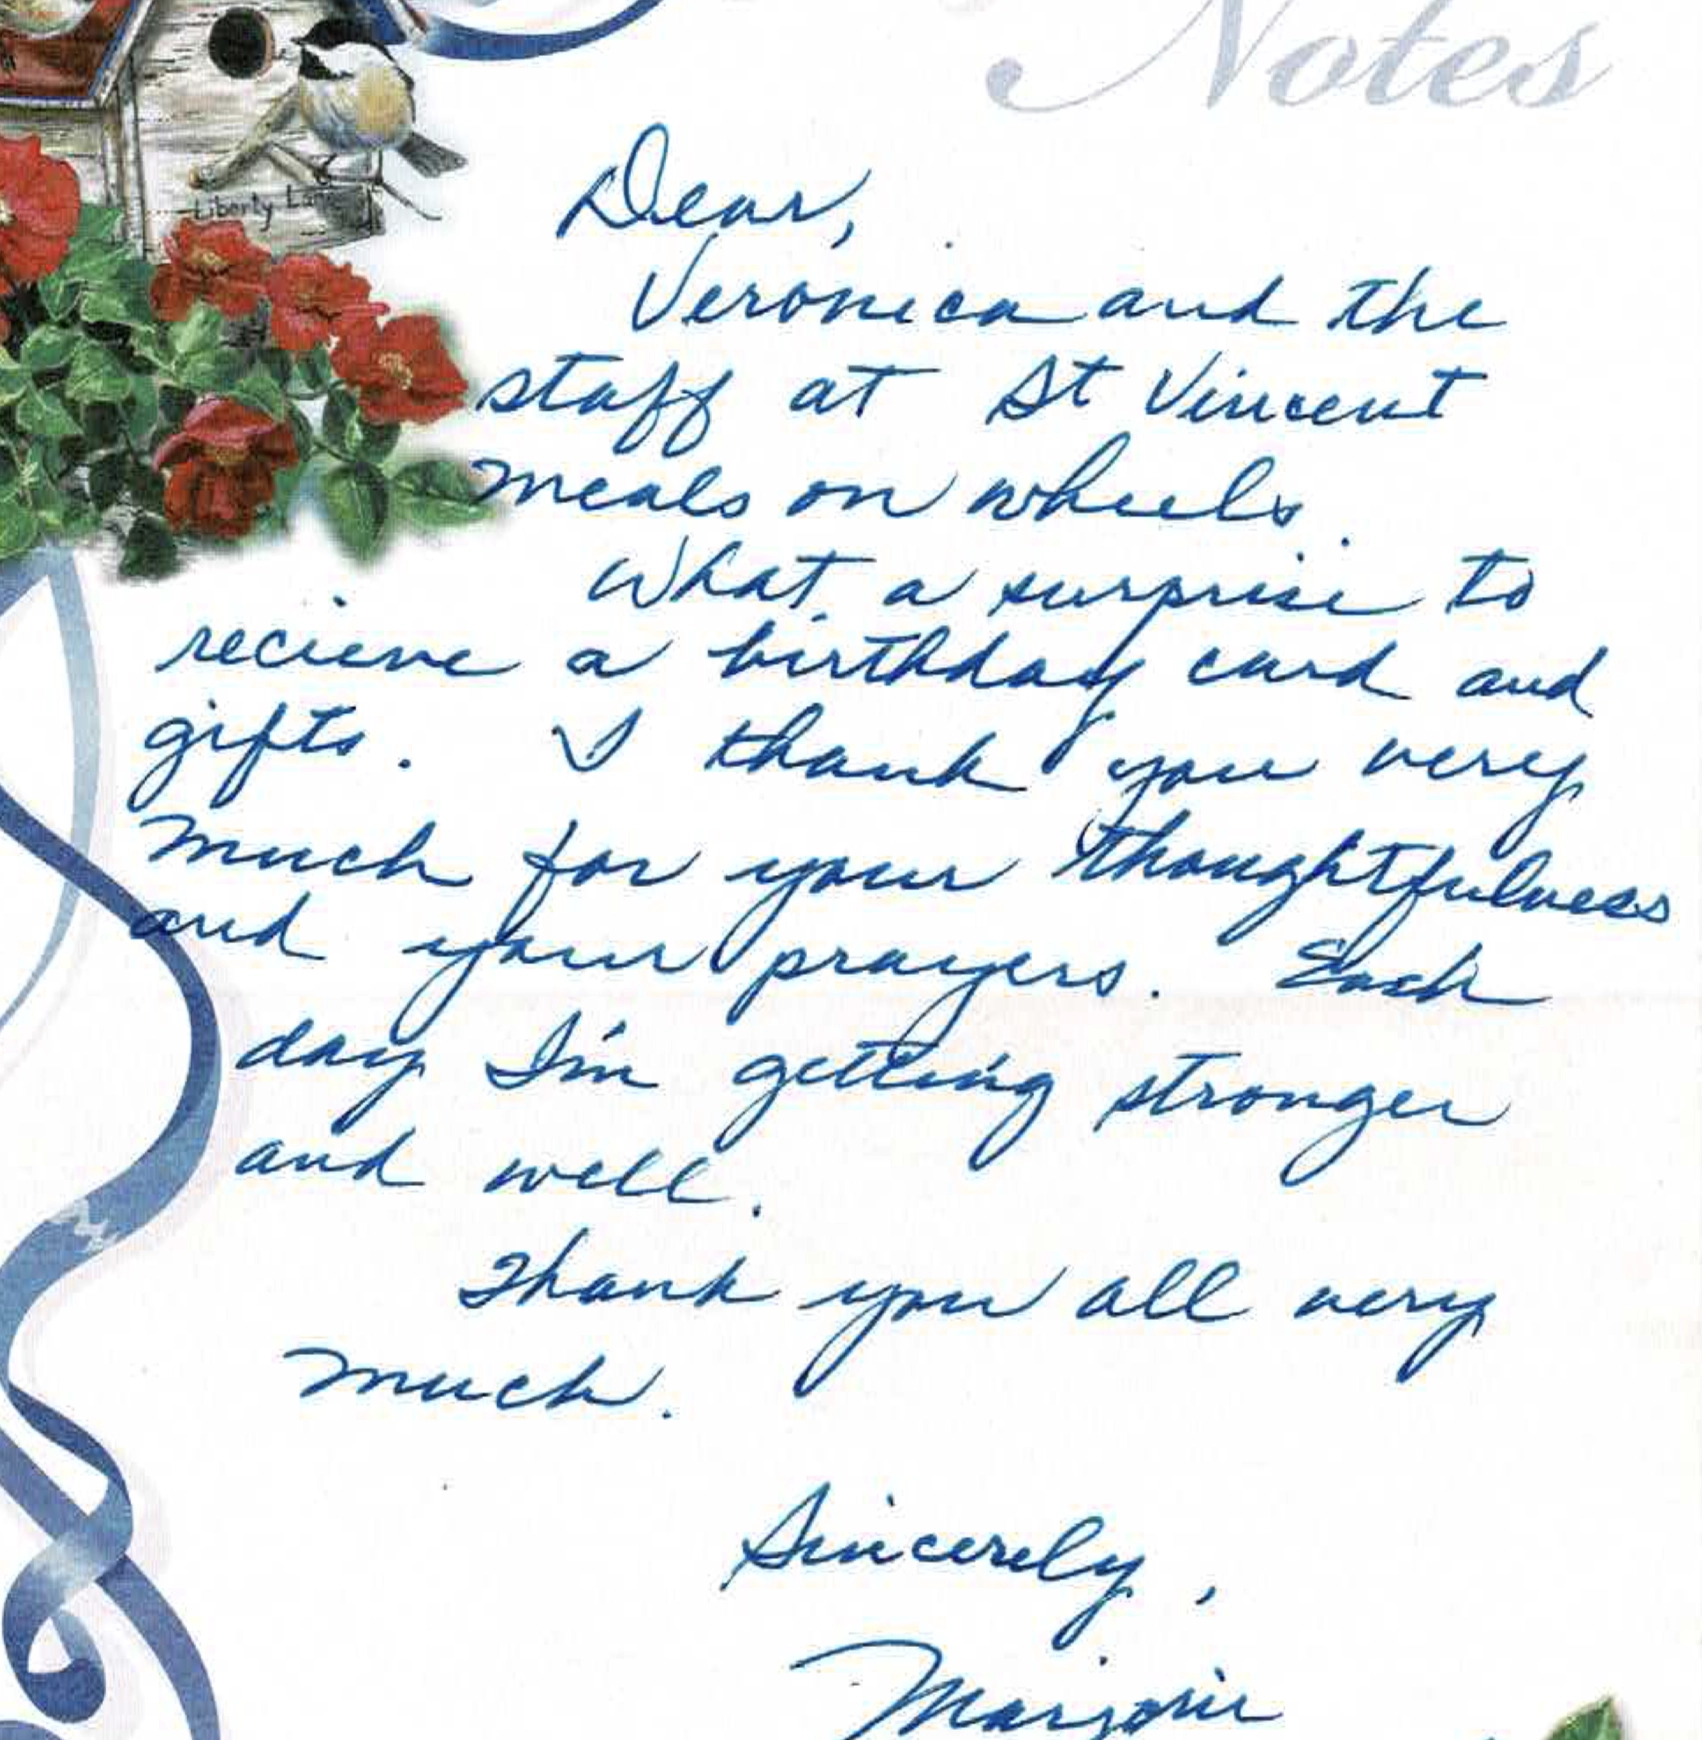 Notes
Liberty Lane
Dear,
Veronica and the
staff at St Vincent
meals on wheels.
What a surprise to
recieve a birthday card and
gifts. I thank you very
much for your thoughtfulness
and your prayers. Each
day I'm getting stronger
and well.
Thank you all very
much.
Sincerely,
Marjorie